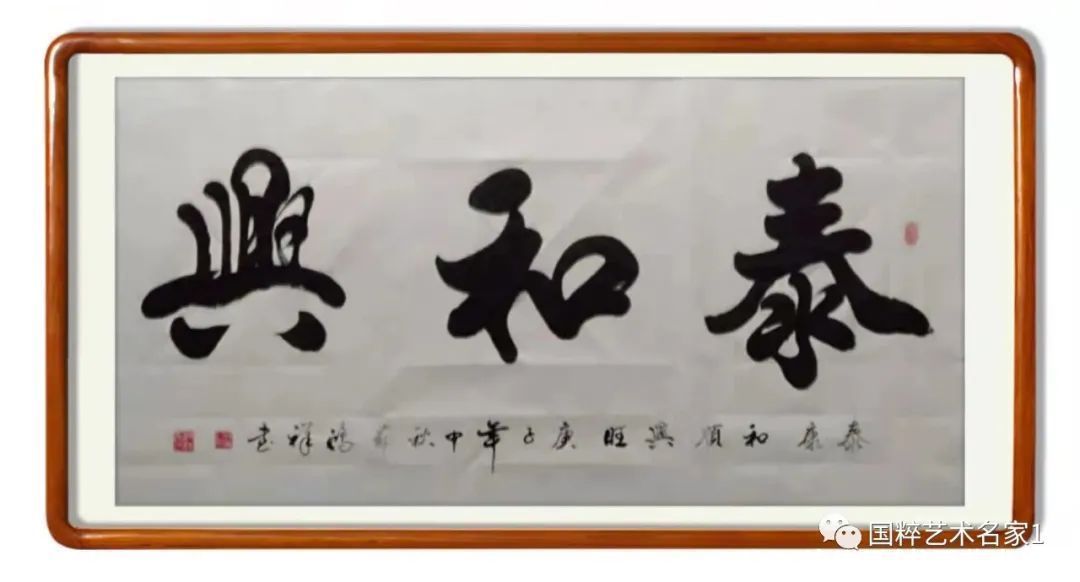 泰和興
泰康和順興旺庚子年中秋鴻祥書
国粹艺术名家1